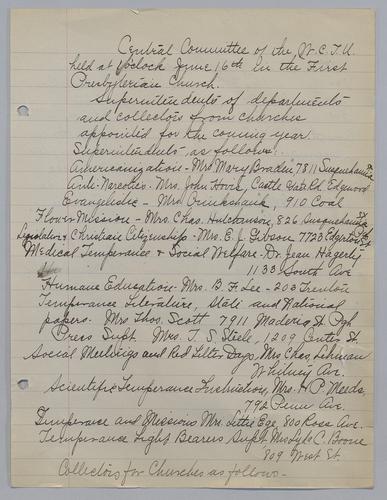 Central Committee of the W.C.T.U.
held at o'clock June 16th in the First
Presbyterian Church.
Superintendents of departments
and collectors from churches
appointed for the coming year.
Superintendents, as follows:
Americanization - Mrs Mary Braden, 7811 Susquehanna St
Anti-Narcotics - Mrs. John Hovis, Castle Edgewood
Evangelistic - Mrs Cruikshank, 910 Coal St
Flower Mission - Mrs. Chas. Hutchinson, 826 Susquehanna St
Legislation & Christian Citizenship - Mrs. E. J. Gibson 7723 Edgerton
Medical Temperance & Social Welfare - Dr. Jean Hagerty
1133 South Ave
Humane Education - Mrs. B. F. Lee - 203 Trenton
Temperance Literature, State and National
papers. Mrs Thos. Scott 7911 Madeira St Pgh
Press Supt. Mrs. T. S. Steele, 1209 Center St.
Social Meetings and Red Letter Days, Mrs Chas. Lehman
Whitney Ave.
Scientific Temperance Instruction, Mrs. H. P. Meeds,
792 Penn Ave.
Temperance and Missions Mrs. Ege, 800 Ross Ave.
Temperance Light Bearers Supt. Mrs C. Boone
809 West St.
Collectors for Churches as follows -